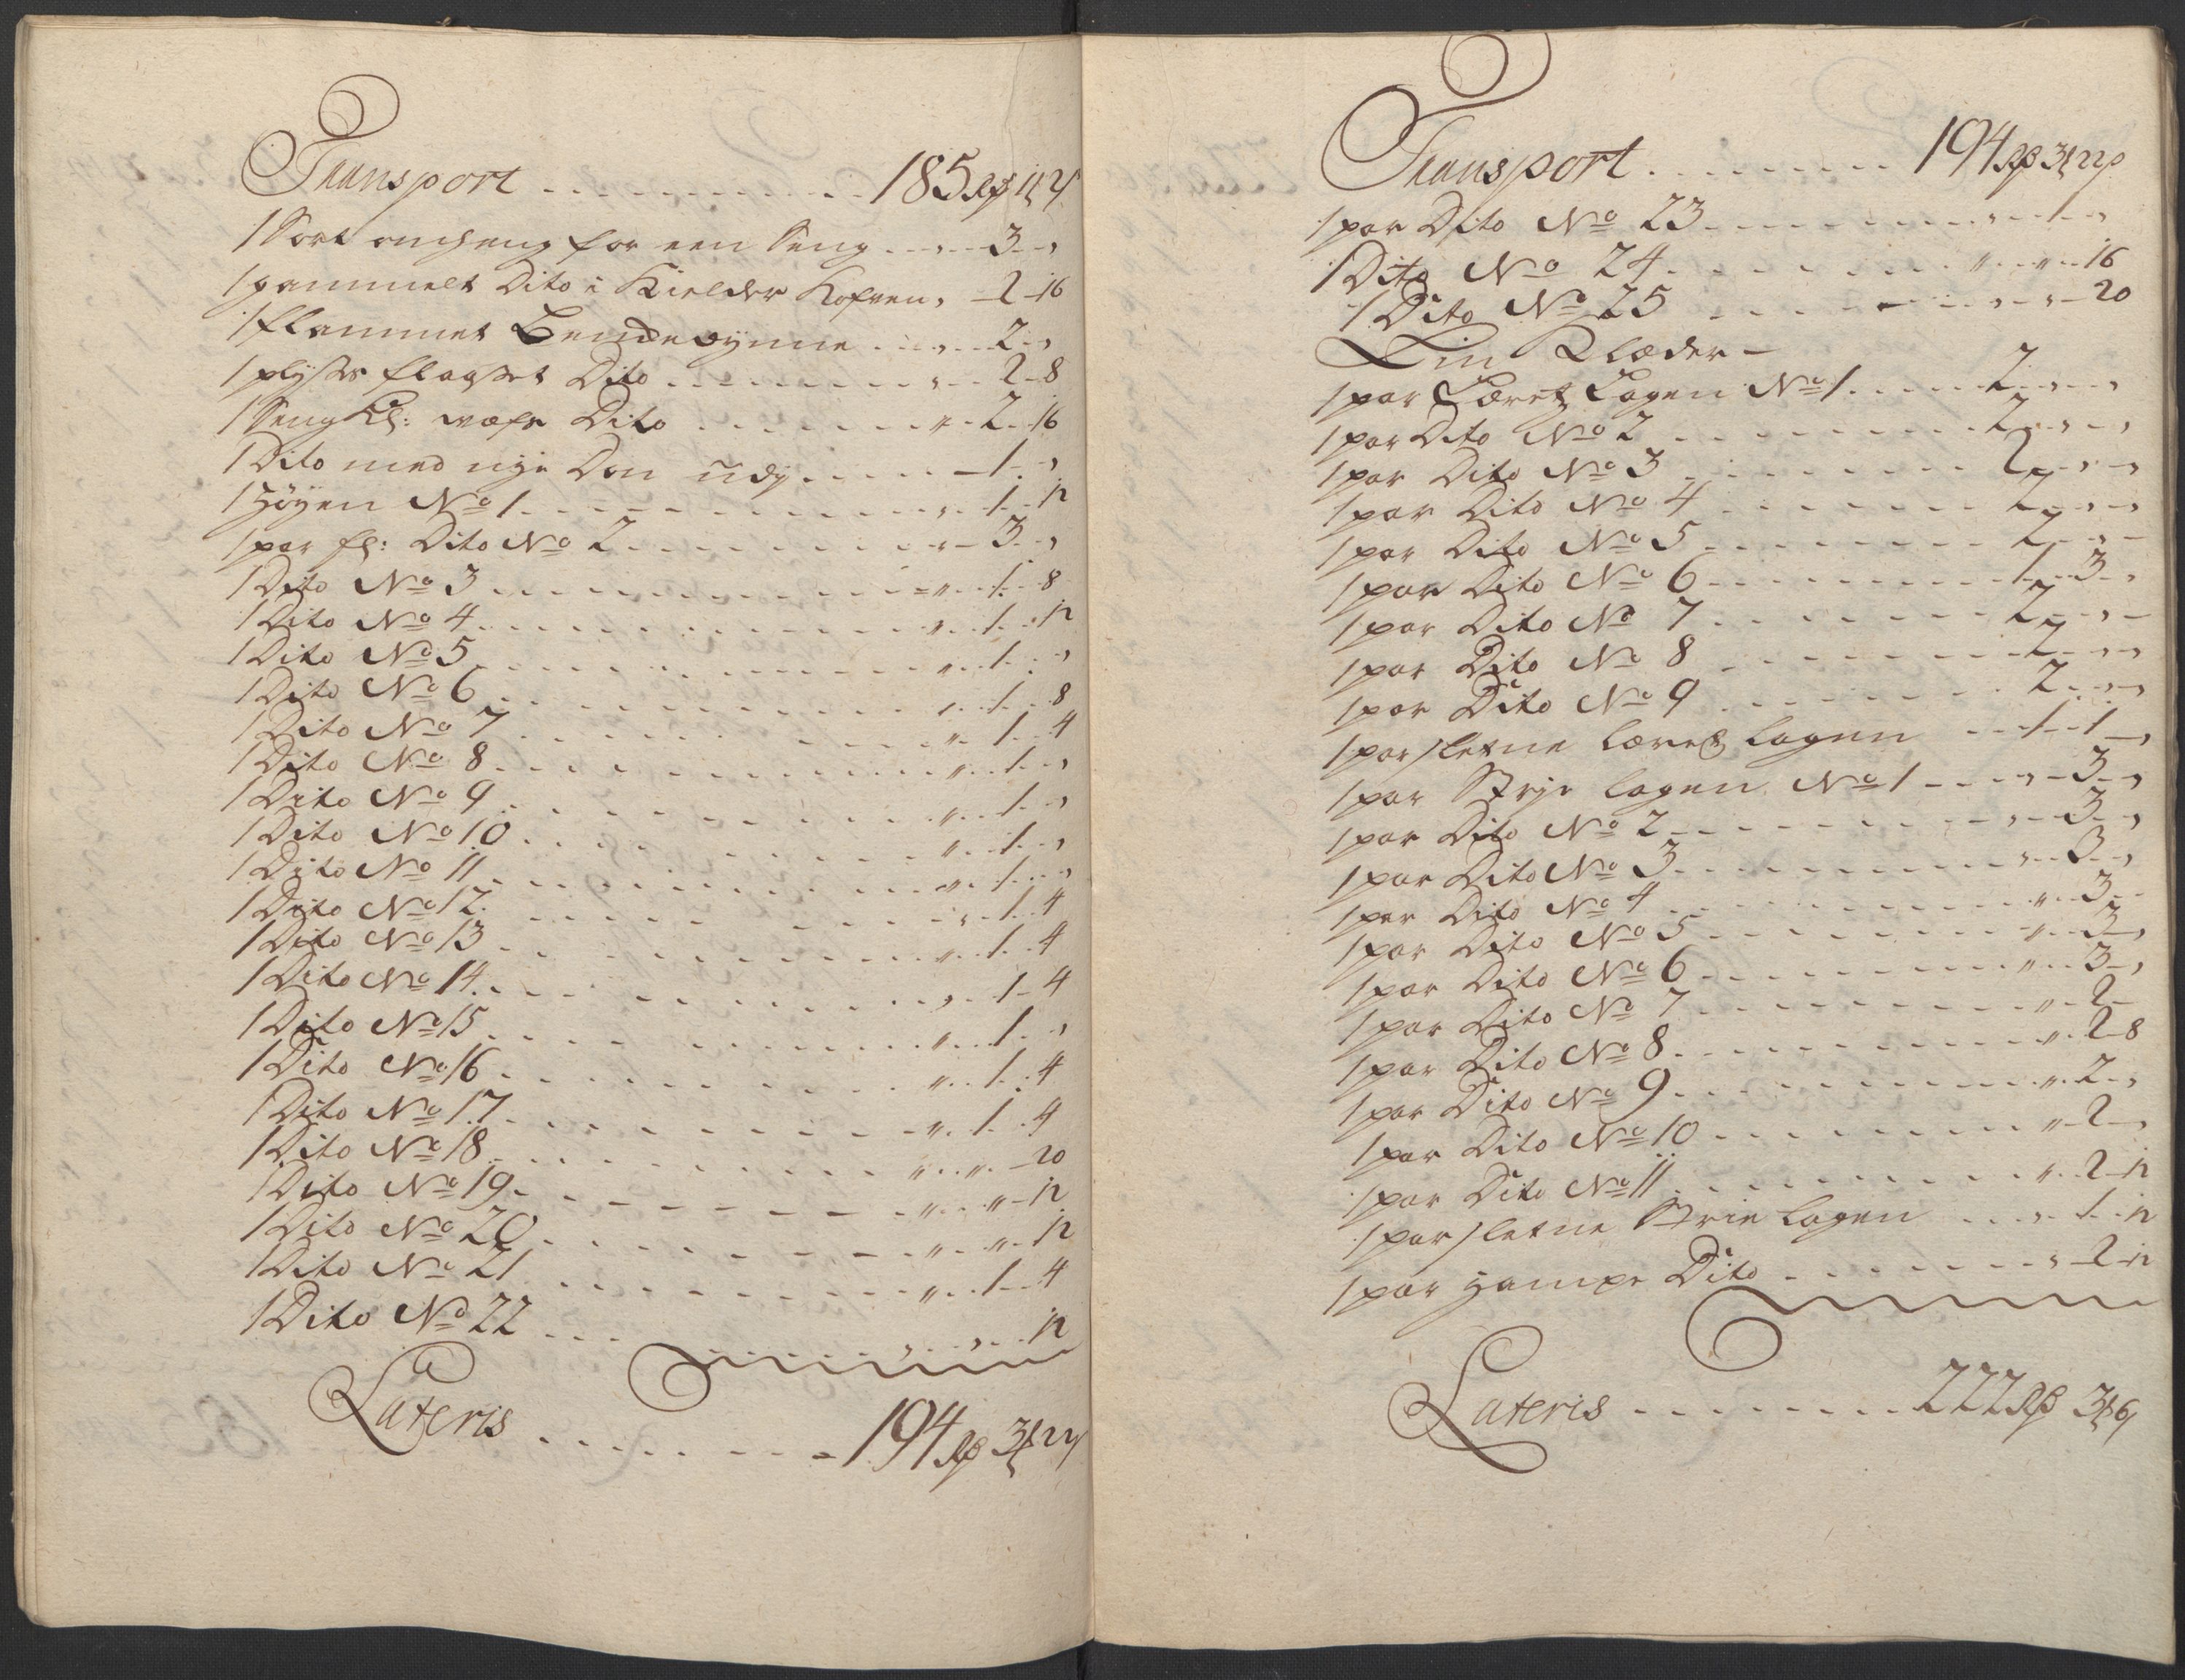 Transport - - - - - - - - - - 185 Rd 1
1 Sort omheng for een Seng - - „ - 3 - „
1 gammelt Dito i Kielder Kofven „ - 2 - 16
1 flammet Bendedynne - - „ - 2 - „
1 plyses Dito - - - - - „ - 2 - 8
1 Dito - - - - - „ - 2 - 16
1 Dito med nye Don udj - - - - - 1 - „
1 Høyen No 1 - - - - - „ - 1 - 12
1 par Dito No 2 - - - - - „ - 3 - „
1 Dito No 3 - - - - - „ - 1 - 8
1 Dito No 4 - - - - - „ - 1 - 12
1 Dito No 5 - - - - - „ - 1 - „
1 Dito No 6 - - - - - „ - 1 - 8
1 Dito No 7 - - - - - „ - 1 - 4
1 Dito No 8 - - - - - „ - 1 - „
1 Dito No 9 - - - - - „ - 1 - „
1 Dito No 10 - - - - - „ - 1 - „
1 Dito No 11 - - - - - „ - 1 - „
1 Dito No 12 - - - - - „ - 1 - 4
1 Dito No 13 - - - - - „ - 1 - 4
1 Dito No 14 - - - - - „ - 1 - 4
1 Dito No 15 - - - - - „ - 1 - „
1 Dito No 16 - - - - - „ - 1 - 4
1 Dito No 17 - - - - - „ - 1 - 4
1 Dito No 18 - - - - - „ - „ - 20
1 Dito No 19 - - - - - „ - „ - 12
1 Dito No 20 - - - - - „ - „ - 12
1 Dito No 21 - - - - - „ - 1 - 4
1 Dito No 22 - - - - - „ - „ - 12
Lateris - - - - - - - - 194 Rd 3 22
Transport - - - - - - - - - 194 Rd 3 22
1 par Dito No 23 - - - - - „ - 1 - „
1 Dito No 24 - - - - - „ - „ - 16
1 Dito No 25 - - - - - „ - „ - 20
Lin Klæder -
1 par Læret Lagen No 1 - - - - 2 - „ - „
1 par Dito No 2 - - - - - 2 - „ - „
1 par Dito No 3 - - - - - 2 - „ - „
1 par Dito No 4 - - - - - 2 - „ - „
1 par Dito No 5 - - - - - 2 - „ - „
1 par Dito No 6 - - - - - 1 - 3 - „
1 par Dito No 7 - - - - - 2 - „ - „
1 par Dito No 8 - - - - - 2 - „ - „
1 par Dito No 9 - - - - - 2 - „ - „
1 par sletne læret lagen - - 1 - 1 - „
1 par Strie lagen No 1 - - - „ - 3 - „
1 par Dito No 2 - - - - - „ - 3 - „
1 par Dito No 3 - - - - - „ - 3 - „
1 par Dito No 4 - - - - - „ - 3 - „
1 par Dito No 5 - - - - - „ - 3 - „
1 par Dito No 6 - - - - - „ - 3 - „
1 par Dito No 7 - - - - - „ - 2 -
1 par Dito No 8 - - - - - „ - 2 - 8
1 par Dito No 9 - - - - - „ - 2 - „
1 par Dito No 10 - - - - - „ - 2 - „
1 par Dito No 11 - - - - - „ - 2 - 12
1 par sletne Strie lagen - - - „ - 1 - 12
1 par Hampe Dito - - - - - „ - 2 - 12
Lateris - - - - - - - - 222 Rd 3 6